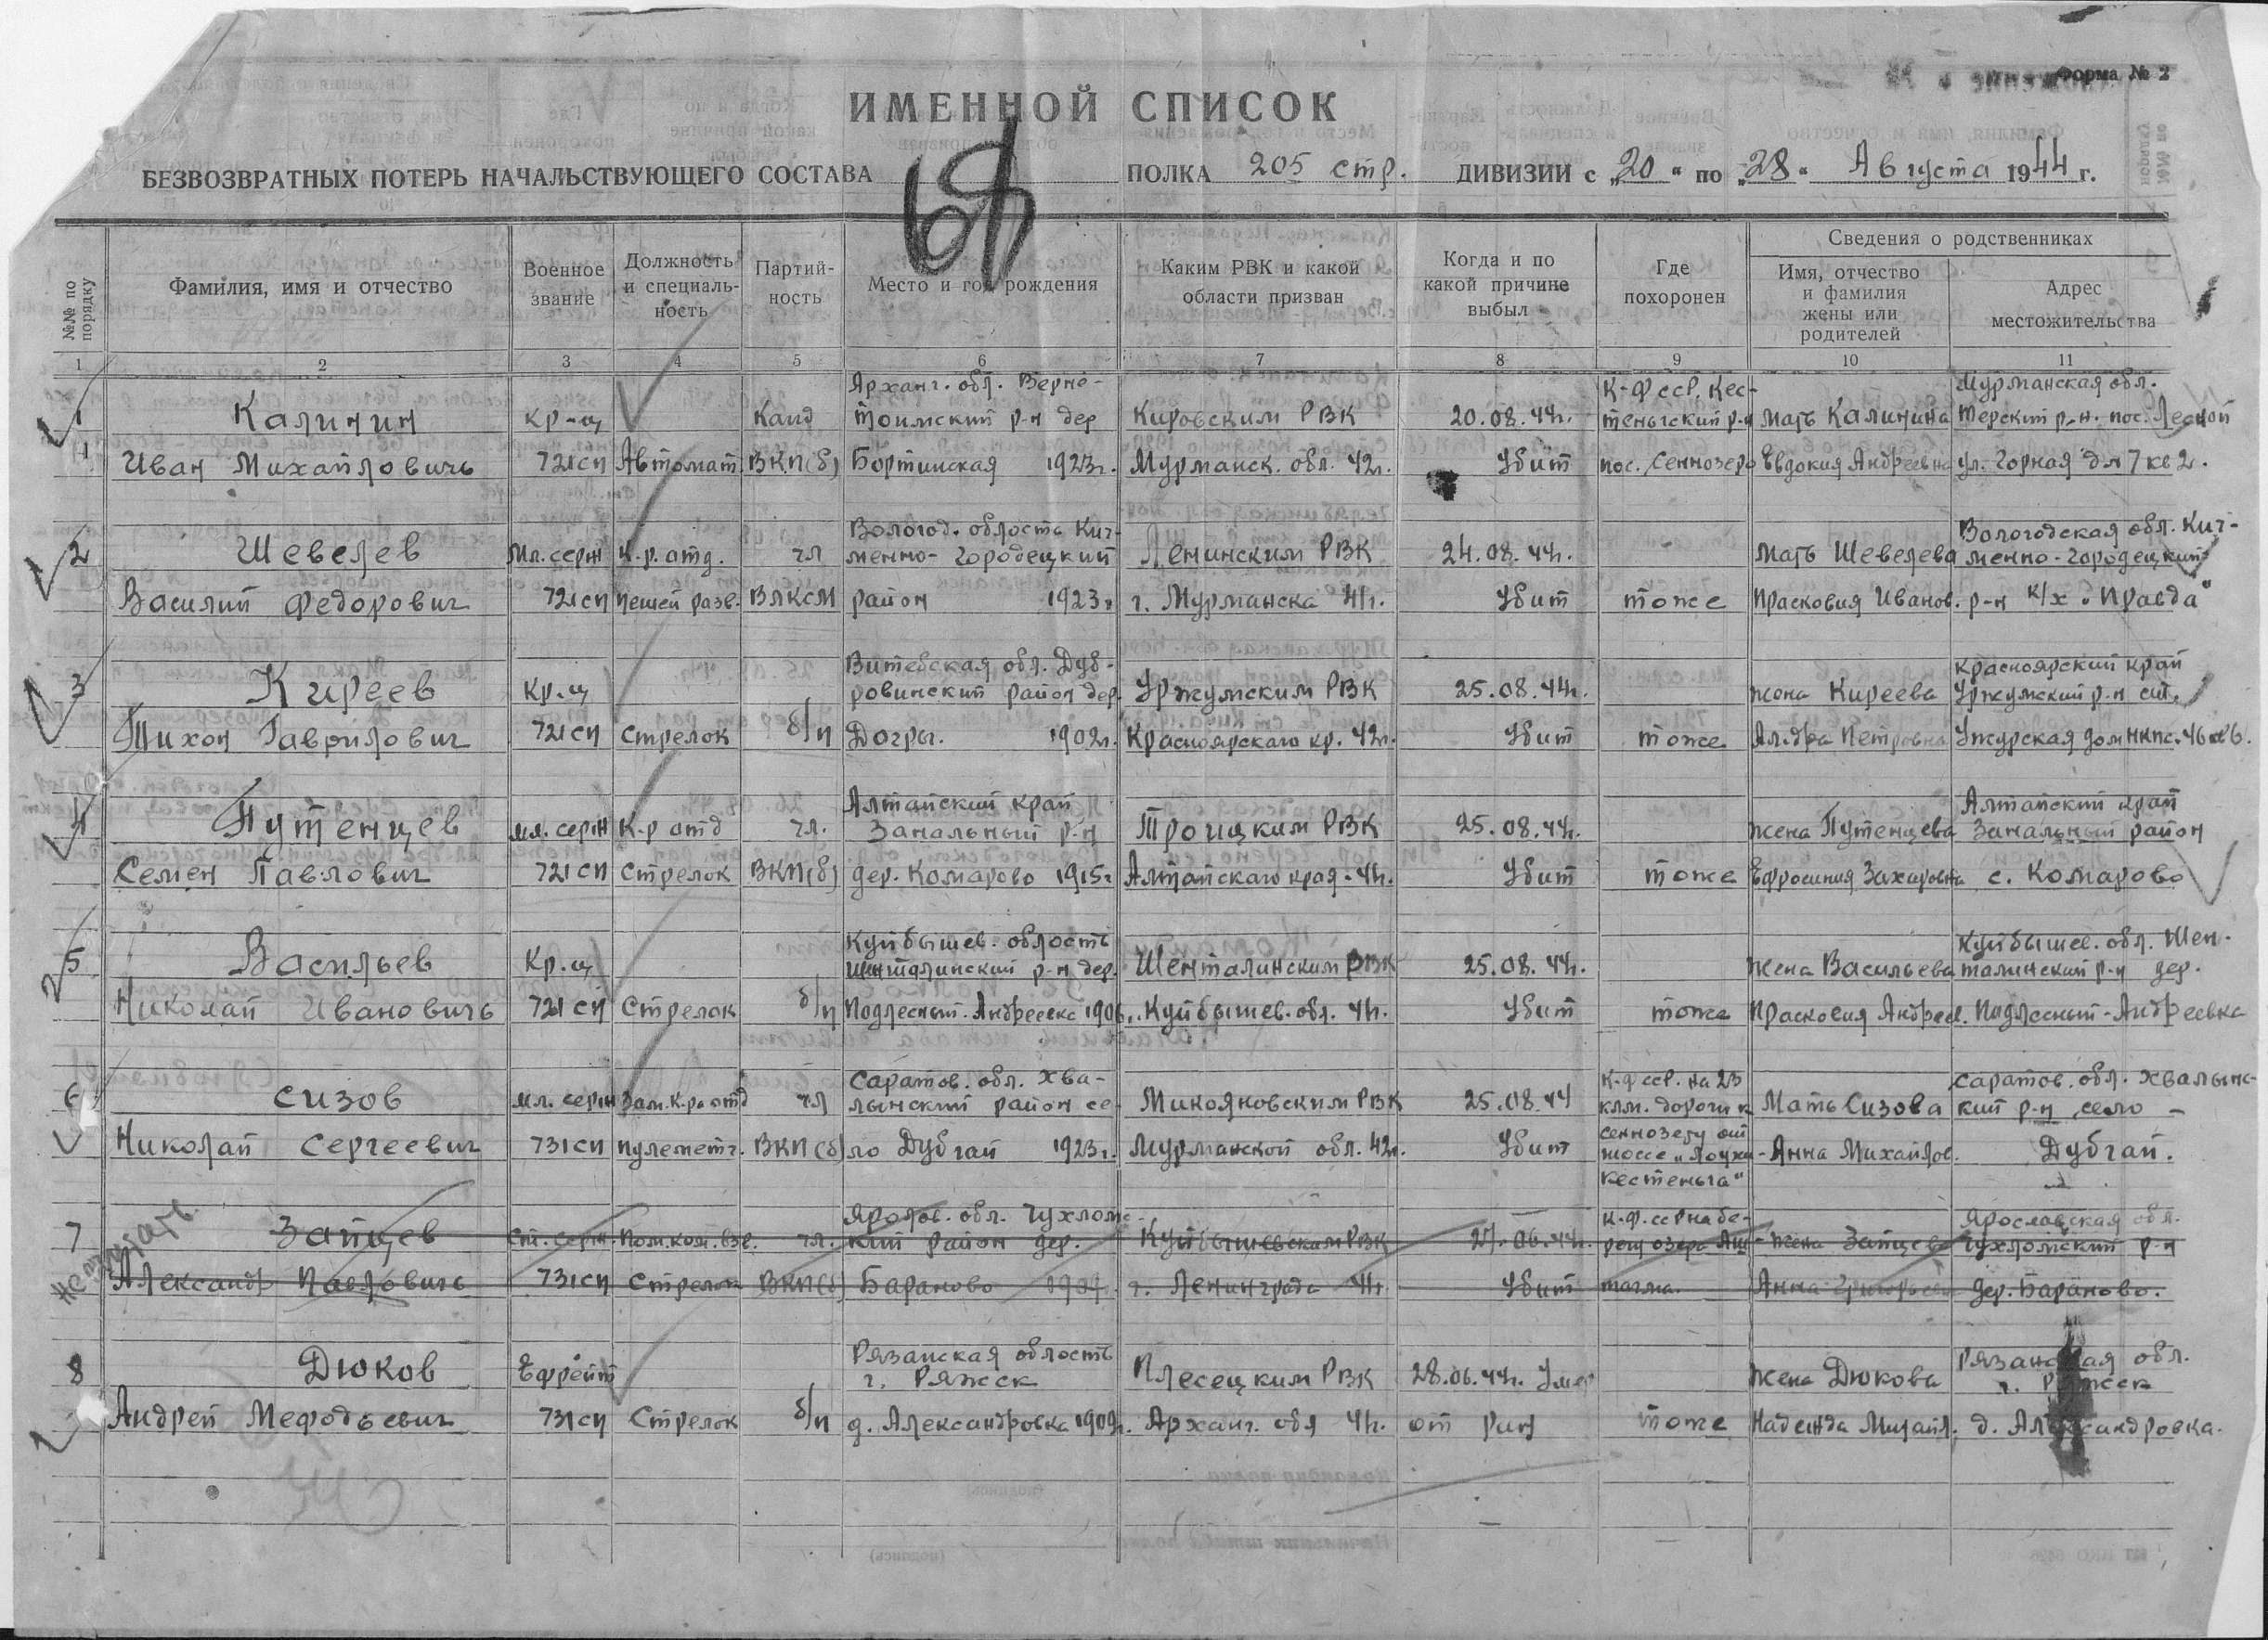 Форма № 2
ИМЕННОЙ СПИСОК
БЕЗВОЗВРАТНЫХ ПОТЕРЬ НАЧАЛЬСТВУЮЩЕГО СОСТАВА ПОЛКА 205 стр. ДИВИЗИИ с „20" по „28" Августа 1944 г.
№№ по порядку
Фамилия, имя и отчество
Военное звание
Должность и специальность
Партийность
Место и год рождения
Каким РВК и какой области призван
Когда и по какой причине выбыл
Где похоронен
Сведения о родственниках
Имя, отчество и фамилия жены или родителей
Адрес местожительства
1 2 3 4 5 6 7 8 9 10 11
Арханг. обл. Верно- К-Ф сср, Кес- Мурманская обл.
1 Калинин кр-ц Канд тоимский р-н дер Кировским РВК 20.08.44г. теньгский р-н Мать Калинина Терский р-н. пос. Лесной
Иван Михайловичь 721сп Автомат. ВКП(б) Бортинская 1923г. Мурманск. обл. 42г. Убит пос. Сеннозеро Евдокия Андреевна ул. Горная д № 7 кв 2.
Вологод. область Кич- Вологодская обл. Кич-
2 Шевелев Мл. серж К-р. отд. чл менно-городецкий Ленинским РВК 24.08.44г. Мать Шевелева менно-городецкий
Василий Федорович 721сп пешей разв. ВЛКСМ район 1923г г. Мурманска 41г. Убит тоже Прасковия Иванов. р-н к/х „Правда"
Витебская обл. Дуб- Красноярский край
3 Киреев Кр-ц ровинский район дер. Уржумским РВК 25.08.44г. жена Киреева Уржумский р-н ст.
Тихон Гаврилович 721сп Стрелок б/п Догры. 1902г. Красноярскаго кр. 42г. Убит тоже Ал-дра Петровна Ужурская дом НКПС. 46 кв 6.
Алтайский край Алтайский край
4 Путенцев мл. серж К-р отд чл. Занальный р-н Троицким РВК 25.08.44г. жена Путенцева Занальный район
Семен Павлович 721сп Стрелок ВКП(б) дер. Комарово 1915г Алтайскаго края-41г. Убит тоже Ефросиния Захаровна с. Комарово
Куйбышев. область Куйбышев. обл. Шен-
5 Васильев Кр-ц Шенталинский р-н дер. Шенталинским РВК 25.08.44г. жена Васильева талинский р-н дер.
Николай Ивановичь 721сп Стрелок б/п Подлесный-Андреевка 1906г. Куйбышев. обл. 41г. Убит тоже Прасковия Андреев. Подлесный-Андреевка
Саратов. обл. Хва- К-Ф сср. на 23 Саратов. обл. Хвалынс-
6 Сизов мл. серж Зам. К-ра отд чл лынский район се- Микояновским РВК 25.08.44 клм. дороги к Мать Сизова кий р-н село -
Николай Сергеевич 731сп пулеметч. ВКП(б) ло Дубгай 1923г. Мурманской обл. 42г. Убит сеннозеру от шоссе „Лоухи- Анна Михайлов. Дубгай.
Кестеньга"
Ярослов. обл. Чухлом- К-Ф. сср на бе- Ярославская обл.
7 Зайцев Ст. серж. Пом. ком. взв. чл. кий район дер. Куйбышевским РВК 27.06.44г. регу озера жена Зайцева Чухломский р-н
Александр Павловичь 731сп Стрелок ВКП(б) Бараново г. Ленинграда 41г. Убит Анна Григорьев дер. Бараново.
Рязанская область Рязанская обл.
8 Дюков Ефрейт г. Ряжск Плесецким РВК 28.06.44г. Умер жена Дюкова г. Ряжск
Андрей Мефодьевич 731сп Стрелок б/п д. Александровка 1909г. Арханг. обл 41г. от ран тоже Надежда Михайл. д. Александровка.